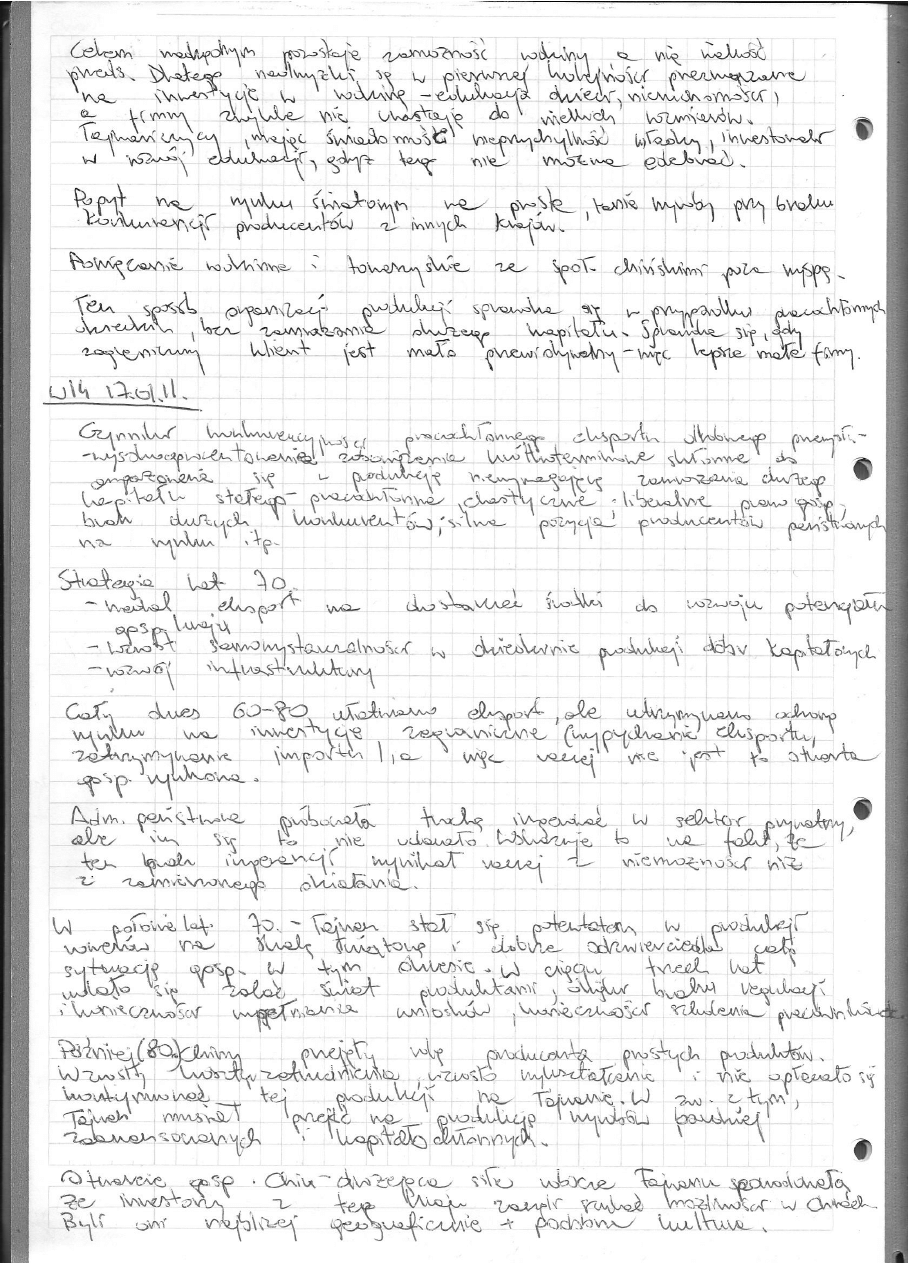 Celem nadrzędnym pozostaje zamożność rodziny a nie wielkość
przeds. Dlatego nadwyżki są w pierwszej kolejności przeznaczane
na inwestycje w rodzinę – edukacja dzieci, nieruchomości,
a firmy zwykle nie urastają do wielkich rozmiarów.
Tajwańczycy, mając świadomość nieprzychylność władzy, inwestowali
w rozwój edukacji, gdyż tego nie można odebrać.
Popyt na rynku światowym na proste, tanie wyroby przy braku
konkurencji producentów z innych krajów.
Powiązania rodzinne i towarzyskie ze społ. chińskimi poza wyspą.
Ten sposób organizacji produkcji sprawdza się w przypadku pracochłonnych
, bez zamrażania dużego kapitału. Sprawdza się, gdy
zagraniczny klient jest mało przewidywalny – więc lepsze małe firmy.
W14 17.01.11.
Czynniki konkurencyjności pracochłonnego eksportu drobnego przemysłu –
– wysokooprocentowane zobowiązania krótkoterminowe skłonne do
angażowania się w produkcję niewymagającą zamrożenia dużego
kapitału stałego – pracochłonna, elastyczne; liberalne prawo gosp.;
brak dużych konkurentów; silna pozycja producentów państwowych
na rynku itp.
Strategia lat 70.
– nadal eksport ma dostarczać środki do rozwoju potencjału
gosp. kraju
– wzrost samowystarczalności w dziedzinie produkcji dóbr kapitałowych
– rozwój infrastruktury
Cały okres 60-80 ułatwiano eksport, ale utrzymywano ochronę
rynku na inwestycje zagraniczne (wypychanie eksportu,
zatrzymywanie importu), a więc raczej nie jest to otwarta
gosp. rynkowa.
Adm. państwowa próbowała trochę ingerować w sektor prywatny,
ale im się to nie udawało. Wskazuje to na fakt, że
ten brak ingerencji wynikał raczej z niemożności niż
z zamierzonego działania.
W połowie lat 70. – Tajwan stał się potentatem w produkcji
rowerów na skalę światową i dobrze odzwierciedla całą
sytuację gosp. w tym okresie. W ciągu trzech lat
udało się zalać świat produktami, braku regulacji
i konieczności wypełniania wniosków, konieczności szkolenia pracowników
Później (80.) Chiny przejęły rolę producenta prostych produktów.
Wzrosły koszty zatrudnienia, wzrosło wykształcenie i nie opłacało się
kontynuować tej produkcji na Tajwanie. W zw. z tym,
Tajwan musiał przejść na produkcję wyrobów bardziej
zaawansowanych i kapitałochłonnych.
Otwarcie gosp. Chin – drożejąca siła robocza Tajwanu spowodowała
że inwestorzy z tego kraju zaczęli szukać możliwości w Chinach
Byli oni najbliżej geograficznie + podobna kultura.